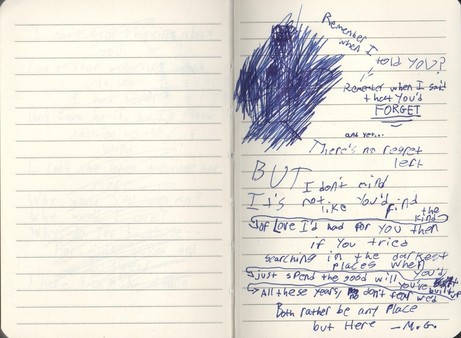 Remember
when I
told YOU?
Remember when I said
that You'd
FORGET
and yet...
There's no regret
left
BUT I don't mind
It's not like You'd find
the kind
of Love I'd had for You then
if You tried
searching in the darkest
places when
You'd
just spend the good will You've built up
All these years, don't fear we'd
both rather be any place
but Here - M.G.